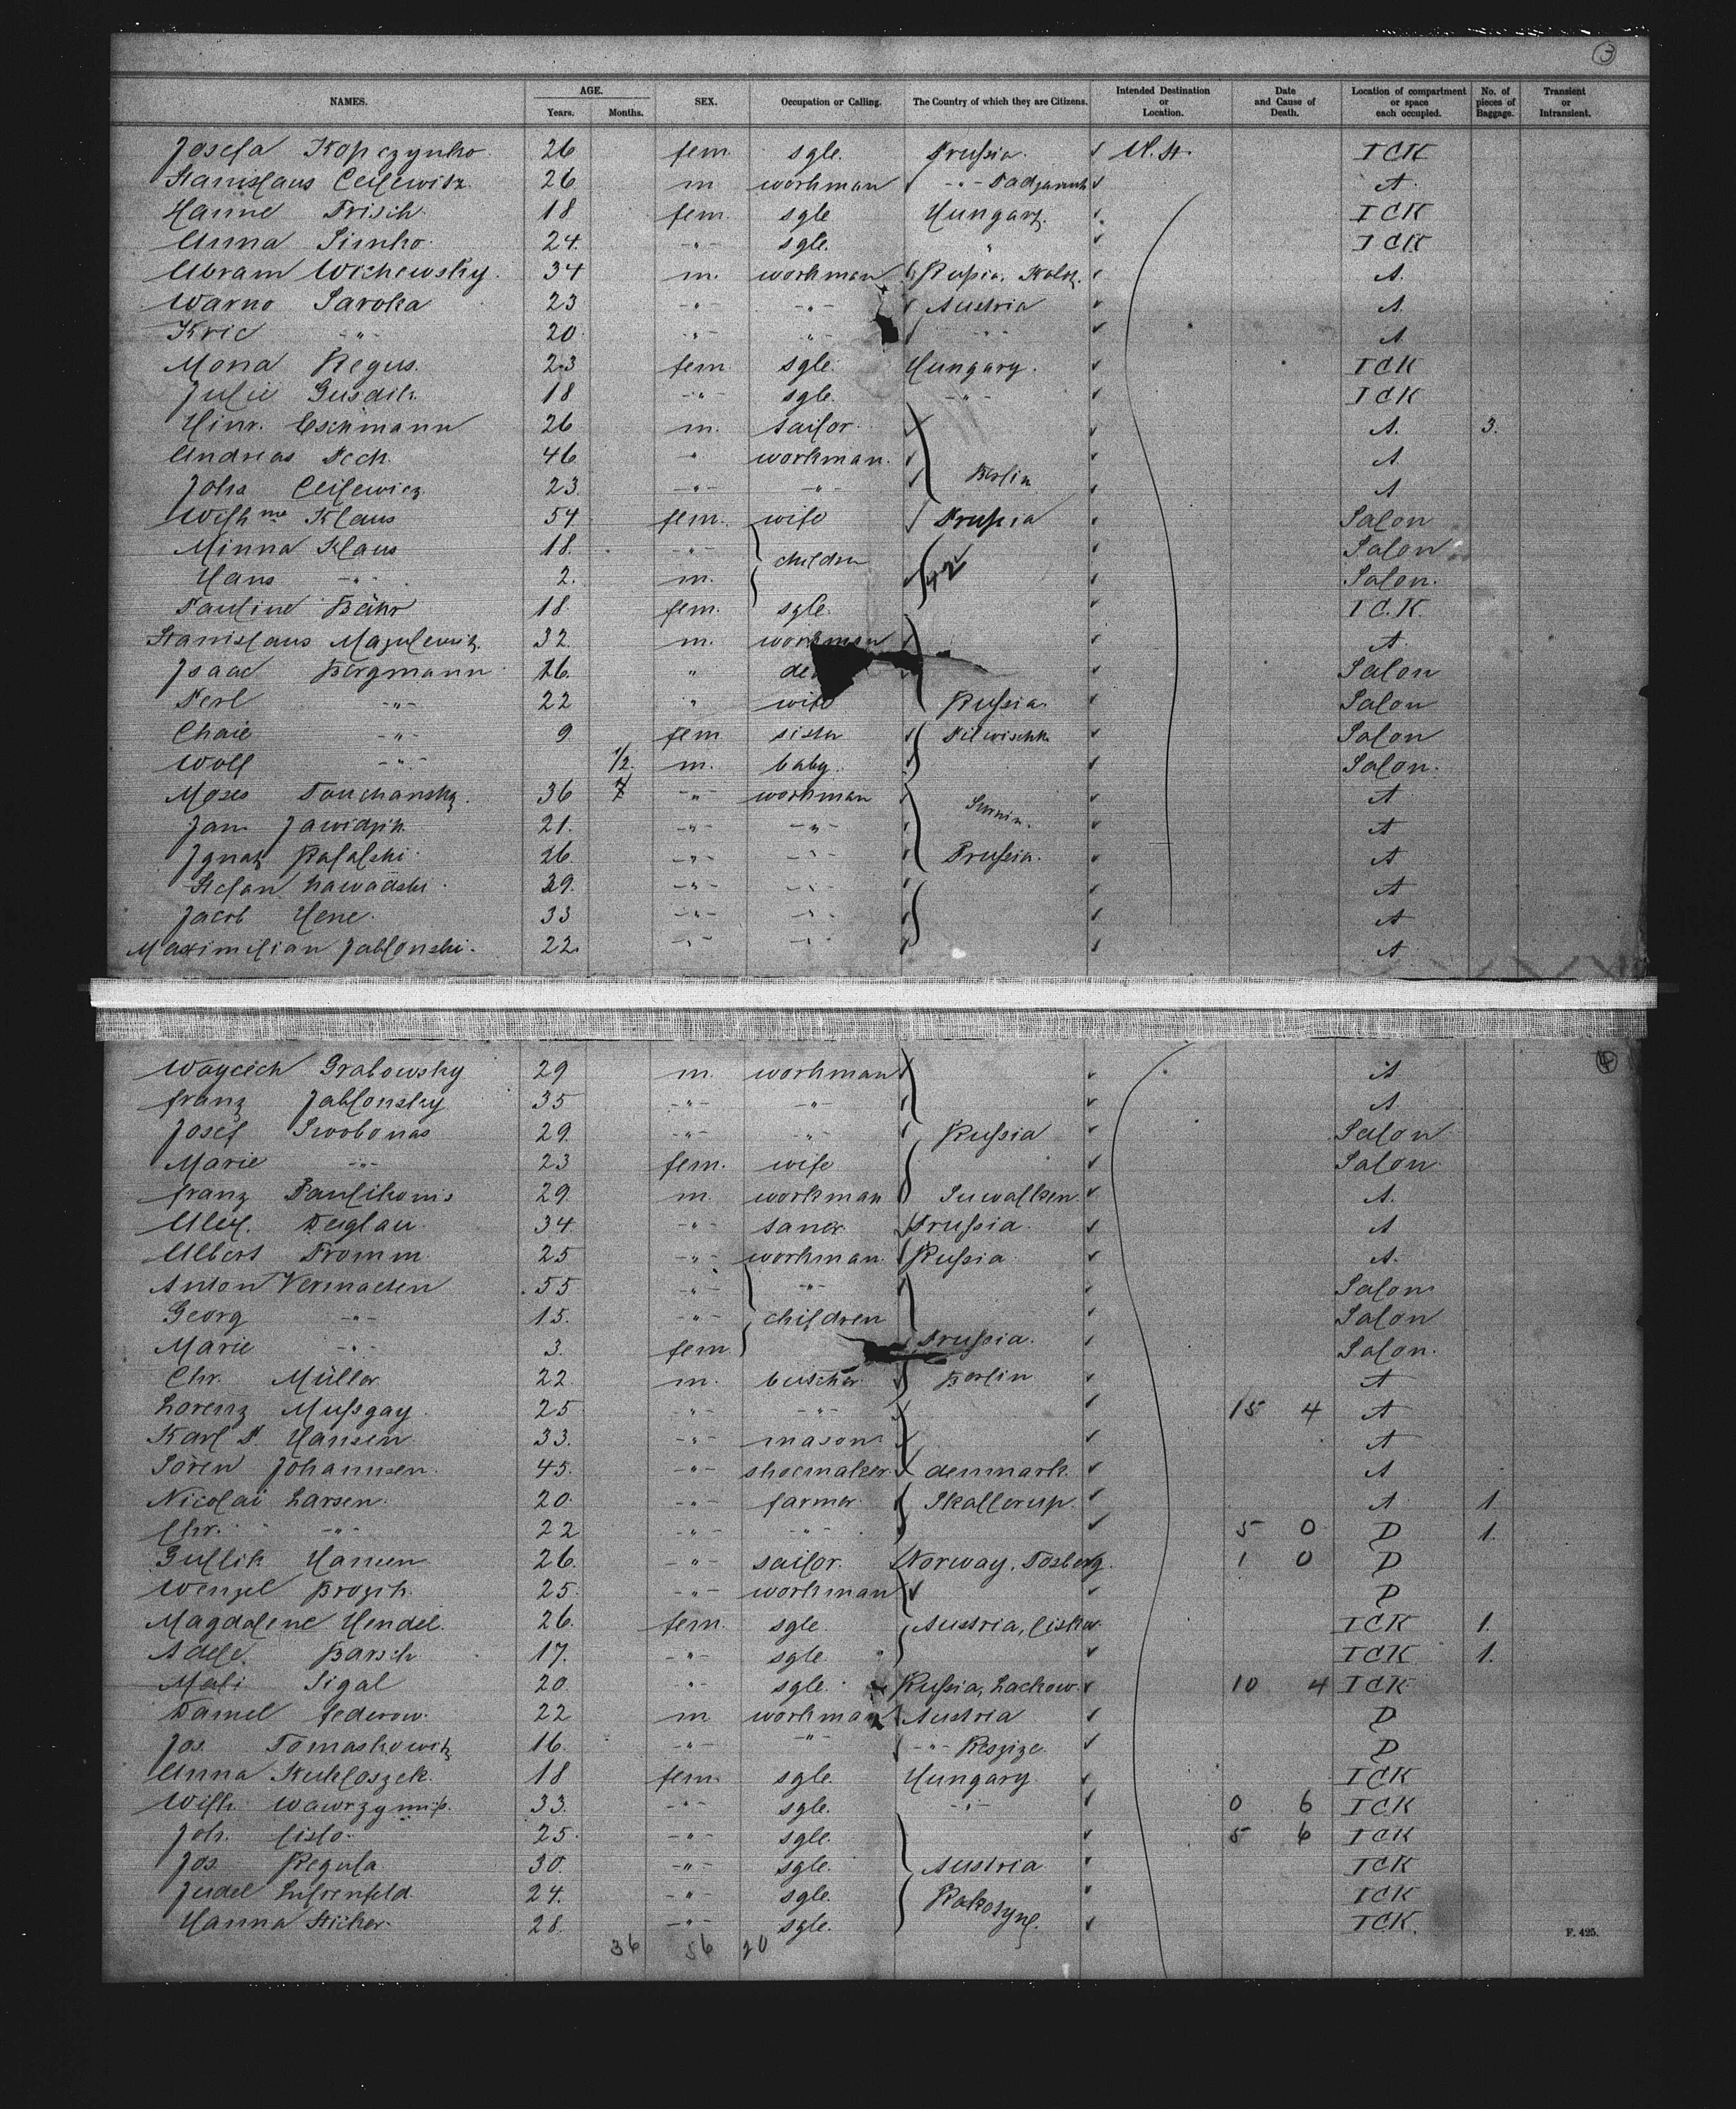 3
NAMES. AGE. Years. Months. SEX. Occupation or Calling. The Country of which they are Citizens. Intended Destination or Location. Date and Cause of Death. Location of compartment or space each occupied. No. of pieces of Baggage. Transient or Intransient.
Josefa 26 fem. sgle. Prussia. U. St. ICK
Stanislaus Ceilewitz 26 m workman -"- A.
Hanne Frisch 18 fem. sgle Hungary. ICK
Anna Simko 24. -"- sgle. " ICK
Abram Wichewsky. 34 m. workman Russia, A.
Warno Saroka 23 -"- -"- Austria A.
-"- 20 -"- -"- -"- A
Mona Regus. 23 fem. sgle. Hungary. ICK
Julie Gusdik 18 -"- sgle. -"- ICK
Hinr. Eschmann 26 m. sailor. A. 3.
Andreas Pech. 46 " workman. A.
Johs Ceilewicz 23 -"- -"- Berlin A
Wilhme Klaus 54 fem. wife Prussia Salon
Minna Klaus 18. -"- children Salon
Hans -"- 2. m. Salon.
Pauline Bähr 18 fem. sgle. I C.K.
Stanislaus Mazulewitz 32. m. workman A.
Isaac Bergmann 26. " Salon
Perl -"- 22 " wife Russia. Salon
Chaie -"- 9 fem sister Pilwischk Salon
Wolf -"- 1/2. m. baby. Salon.
Moses 36 -"- workman A
Jan Jawidzik 21. -"- -"- A
Ignatz Rafalski 26. -"- -"- Prussia. A
Stefan Zawadski 29. -"- -"- A
Jacob Hene. 33 -"- -"- A
Maximilian Jablonski. 22. -"- -"- A
4
Waycech Grabowsky 29 m. workman A
Franz Jablonsky 35 -"- -"- A.
Josef Swobonas 29. -"- -"- Russia Salon
Marie -"- 23 fem. wife Salon.
Franz Paulikonis 29. m. workman Suwalken A.
Alex. Deiglau 34 -"- Prussia. A
Albert Fromm 25 -"- workman. Russia A.
Anton Vermaeten 55 -"- -"- Salon
Georg -"- 15. -"- children Salon
Marie -"- 3. fem. Prussia. Salon.
Chr. Müller 22. m. butcher Berlin A
Lorenz Mussgay. 25 -"- -"- 15 4 A
Karl P. Hansen 33. -"- mason A
Sören Johannsen. 45. -"- shoemaker. denmark. A
Nicolai Larsen. 20. -"- farmer. Skallerup. A 1
Chr. -"- 22 -"- -"- 5 0 D 1.
Gullik Hansen 26. -"- sailor. Norway, Tosberg. 1 0 D
Wenzel Brozik. 25. -"- workman D
Magdalene Hendel. 26. fem. sgle. Austria, ICK 1.
Adele. Barsch 17. -"- sgle. ICK 1.
Mali Sigal 20. -"- sgle. Russia, Lachow. 10 4 ICK
Daniel Federow. 22 m workman Austria D
Jos. Tomaskowitz 16. -"- -"- -"- D
Anna 18 fem. sgle. Hungary. ICK
Wilh. 33. -"- sgle. -"- 0 6 ICK
Joh. Cislo. 25. -"- sgle. 5 6 ICK
Jos. Regula 30. -"- sgle. Austria ICK
Judel 24. -"- sgle. ICK
Hanna Sticker. 28. -"- sgle. ICK.
36 56 20
F. 425.